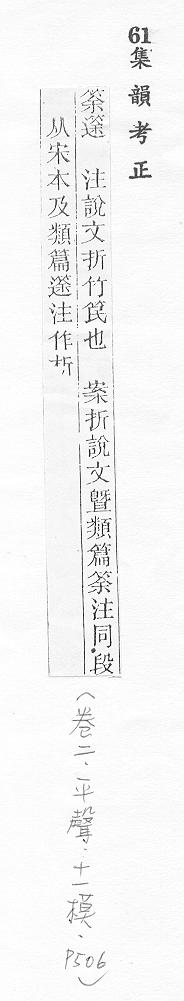 61集韻考正
筡𥴦 注說文折竹笢也 案折說文暨類篇筡注同段
从宋本及類篇𥴦注作析
(卷二·平聲·十一模·P506)